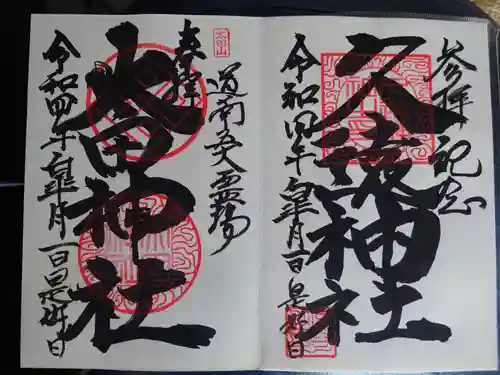 参拝記念
久遠神社
令和四年皐月一日是好日
太田山
道南五大霊場
奉拝
太田神社
令和四年皐月一日是好日